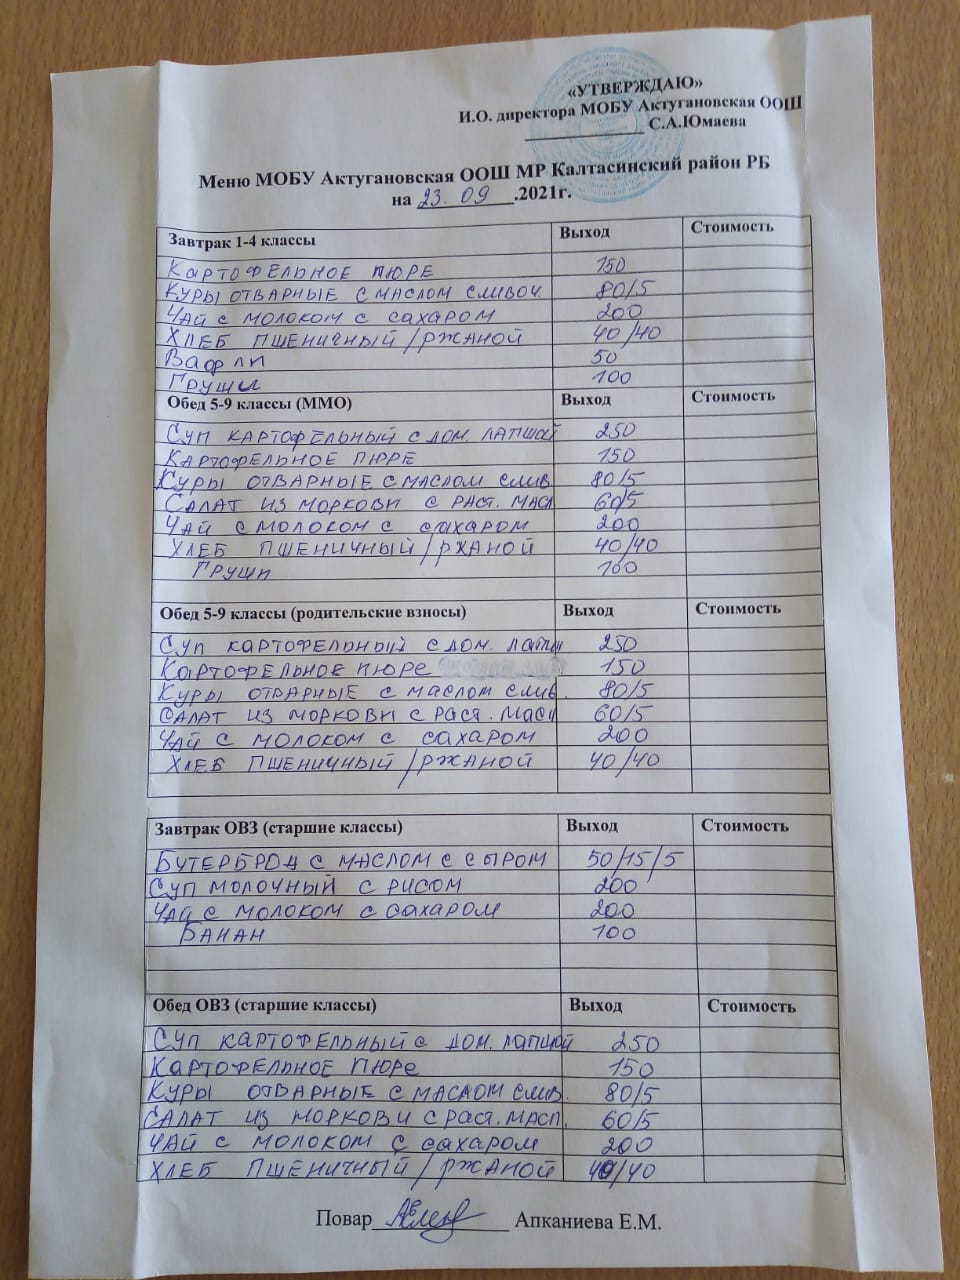 «УТВЕРЖДАЮ»
И.О. директора МОБУ Актугановская ООШ
С.А.Юмаева
Меню МОБУ Актугановская ООШ МР Калтасинский район РБ
на 23. 09 .2021г.
Завтрак 1-4 классы Выход Стоимость
КАРТОФЕЛЬНОЕ ПЮРЕ 150
КУРЫ ОТВАРНЫЕ С МАСЛОМ СЛИВОЧ. 80/5
ЧАЙ С МОЛОКОМ С САХАРОМ 200
ХЛЕБ ПШЕНИЧНЫЙ/РЖАНОЙ 40/40
ВАФЛИ 50
ГРУШИ 100
Обед 5-9 классы (ММО) Выход Стоимость
СУП КАРТОФЕЛЬНЫЙ С ДОМ. ЛАПШОЙ 250
КАРТОФЕЛЬНОЕ ПЮРЕ 150
КУРЫ ОТВАРНЫЕ С МАСЛОМ СЛИВ 80/5
САЛАТ ИЗ МОРКОВИ С РАСТ. МАСЛ 60/5
ЧАЙ С МОЛОКОМ С САХАРОМ 200
ХЛЕБ ПШЕНИЧНЫЙ/РЖАНОЙ 40/40
ГРУШИ 100
Обед 5-9 классы (родительские взносы) Выход Стоимость
СУП КАРТОФЕЛЬНЫЙ С ДОМ. ЛАПШ 250
КАРТОФЕЛЬНОЕ ПЮРЕ 150
КУРЫ ОТВАРНЫЕ С МАСЛОМ СЛИВ. 80/5
САЛАТ ИЗ МОРКОВИ С РАСТ. МАСЛ 60/5
ЧАЙ С МОЛОКОМ С САХАРОМ 200
ХЛЕБ ПШЕНИЧНЫЙ/РЖАНОЙ 40/40
Завтрак ОВЗ (старшие классы) Выход Стоимость
БУТЕРБРОД С МАСЛОМ С СЫРОМ 50/15/5
СУП МОЛОЧНЫЙ С РИСОМ 200
ЧАЙ С МОЛОКОМ С САХАРОМ 200
БАНАН 100
Обед ОВЗ (старшие классы) Выход Стоимость
СУП КАРТОФЕЛЬНЫЙ С ДОМ. ЛАПШОЙ 250
КАРТОФЕЛЬНОЕ ПЮРЕ 150
КУРЫ ОТВАРНЫЕ С МАСЛОМ СЛИВ. 80/5
САЛАТ ИЗ МОРКОВИ С РАСТ. МАСЛ. 60/5
ЧАЙ С МОЛОКОМ С САХАРОМ 200
ХЛЕБ ПШЕНИЧНЫЙ/РЖАНОЙ 40/40
Повар Апканиева Е.М.